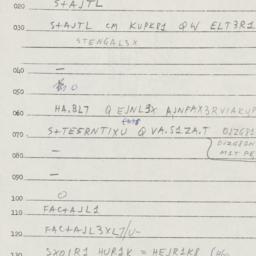 020 S+AJTL
030 S+AJTL CM KUPK81 QW ELT3R1
STENGAL3X
040 —
050 0
060 HA.BL7 Q EJNL9X AJNPAX3RVIAKUP
070 S+TESRNTIXU QVA.S1ZA.T DIZG81
080 — DIZG81H
MIT PE
090 —
100 0
110 FAC+AJL1
120 FAC+AJL3XL7/U-
130 SXDIR1 HUR1K = HEJR1K8